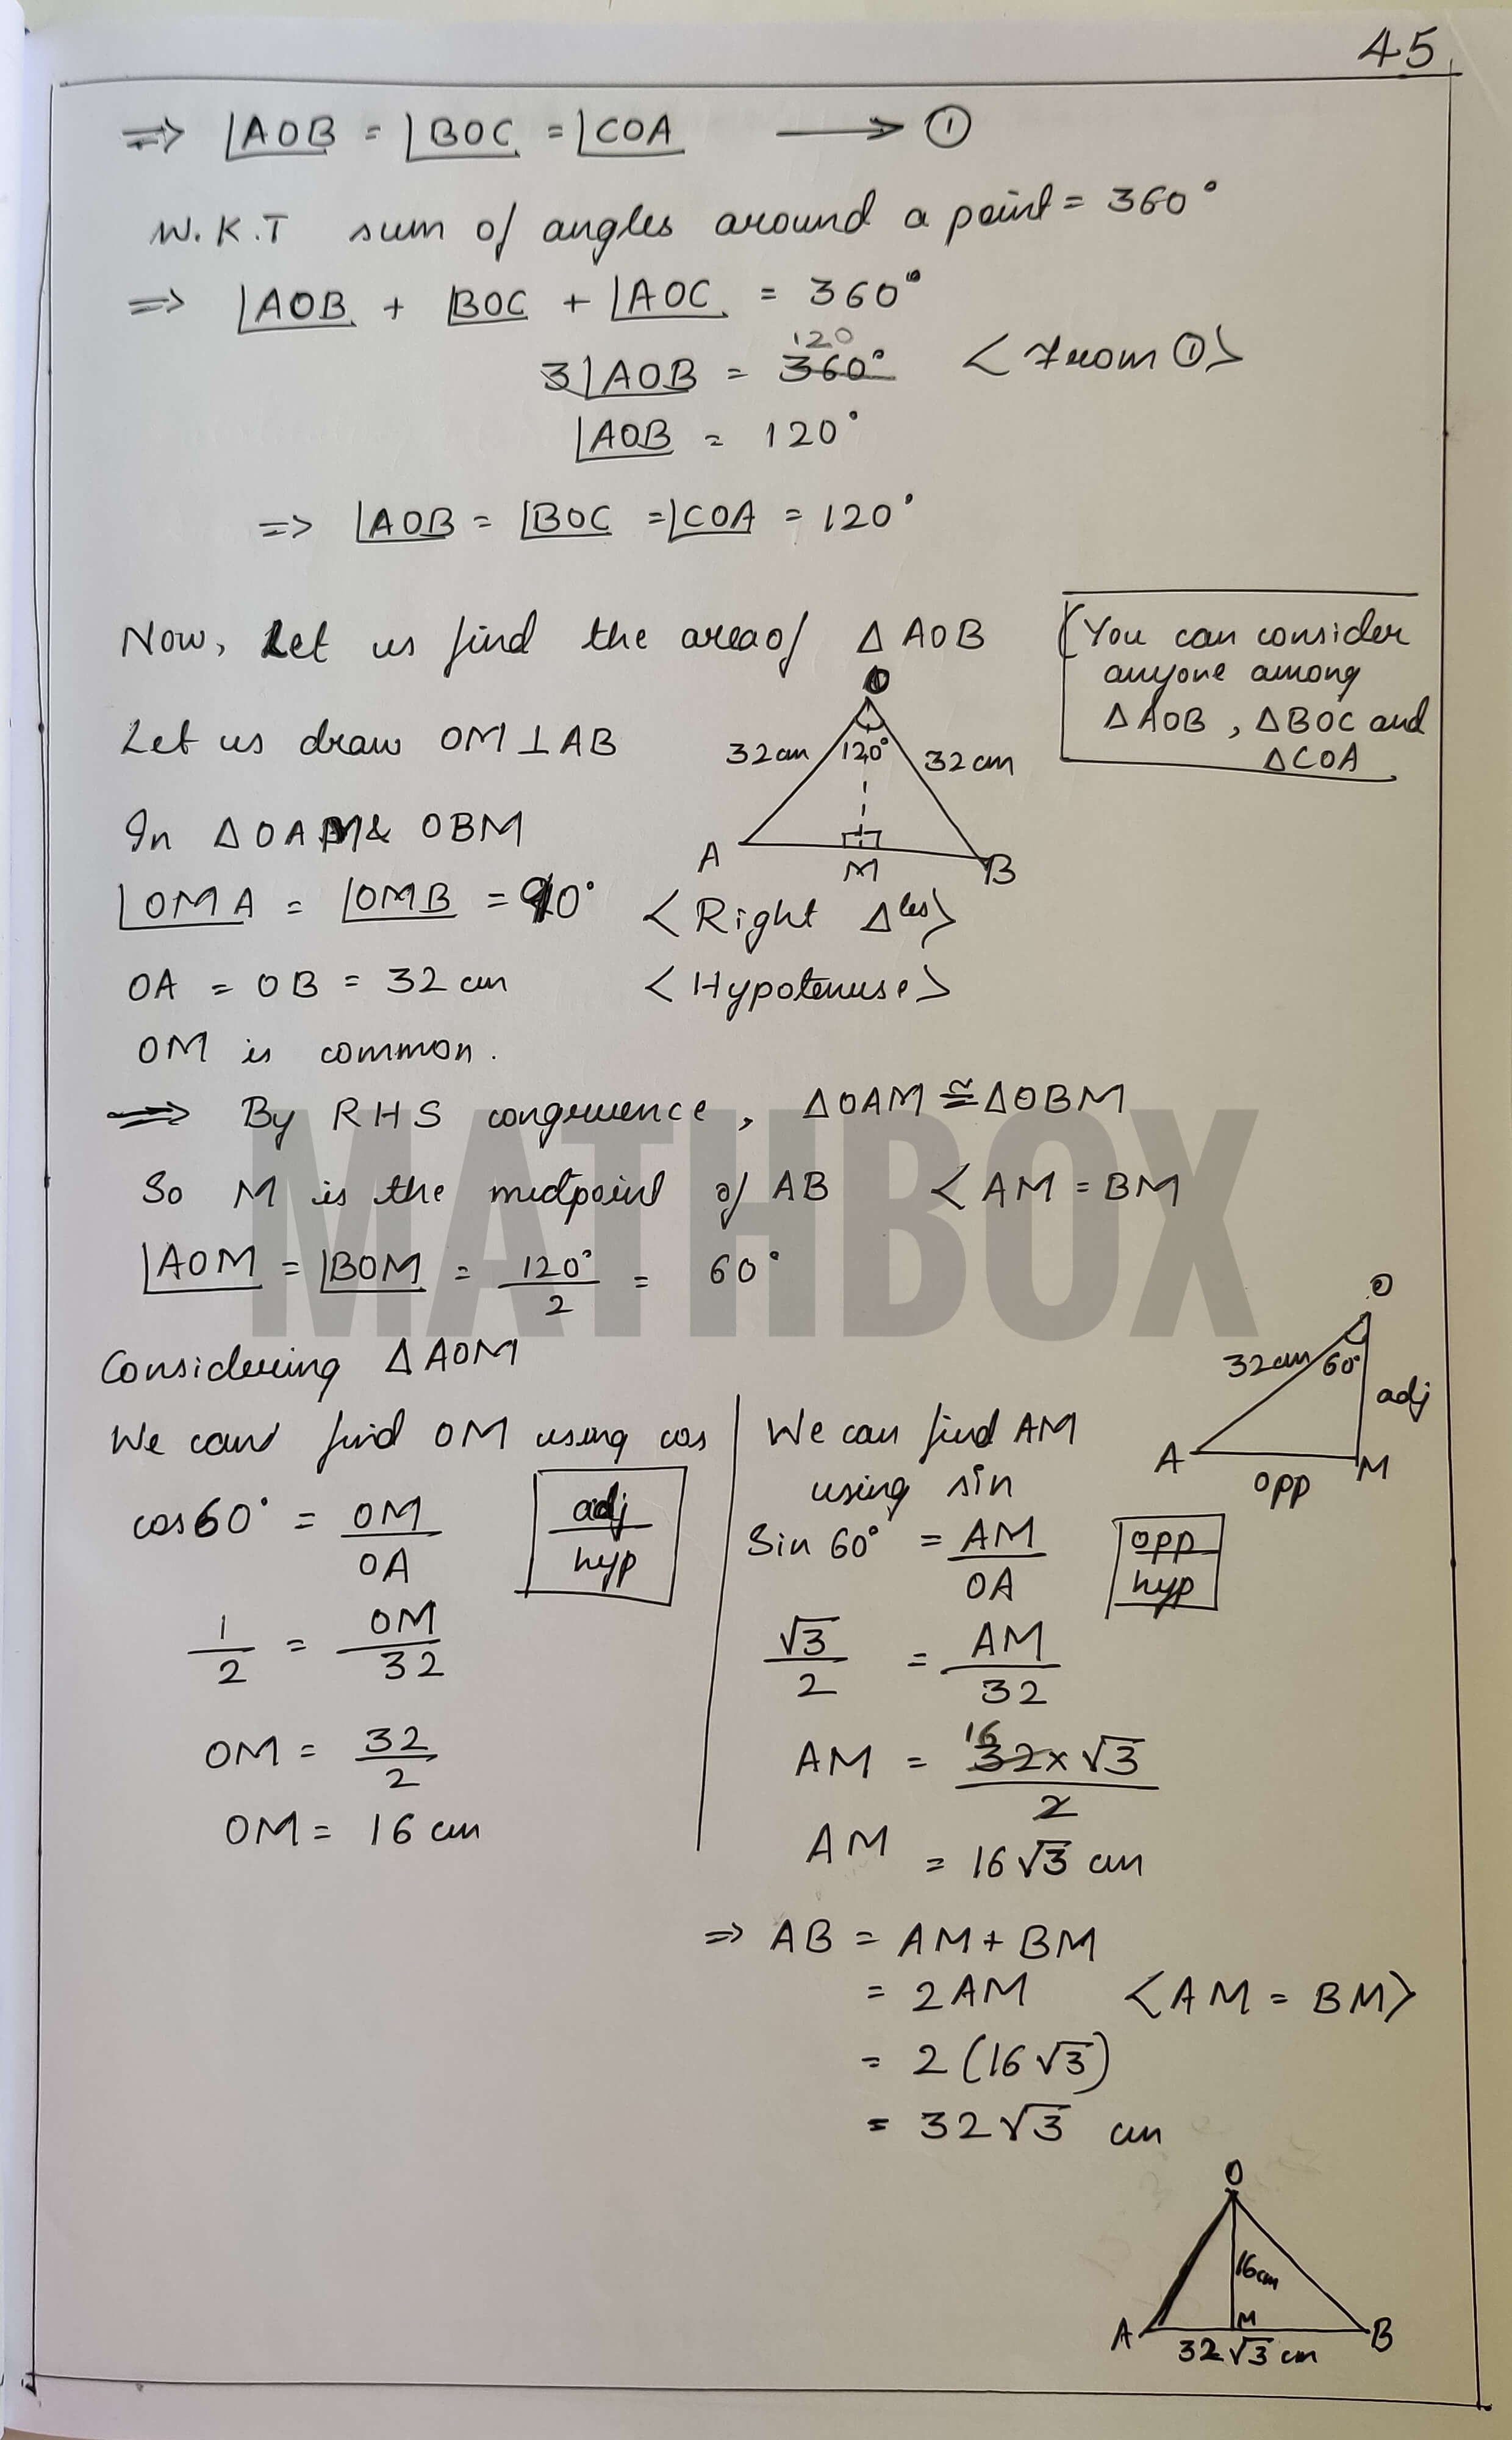 45
⇒ ∠AOB = ∠BOC = ∠COA ⟶ ①
W.K.T sum of angles around a point = 360°
⇒ ∠AOB + ∠BOC + ∠AOC = 360°
120
3∠AOB = 360° <From ①>
∠AOB = 120°
⇒ ∠AOB = ∠BOC = ∠COA = 120°
Now, Let us find the area of △AOB
(You can consider
anyone among
△AOB, △BOC and
△COA
Let us draw OM⊥AB
O
32cm 120° 32cm
A M B
In △OAM & OBM
∠OMA = ∠OMB = 90° <Right △les>
OA = OB = 32 cm <Hypotenuse>
OM is common.
⇒ By RHS congruence, △OAM ≅ △OBM
So M is the midpoint of AB <AM = BM
MATHBOX
∠AOM = ∠BOM = 120°/2 = 60°
Considering △AOM
O
32cm 60°
adj
A M
opp
We can find OM using cos
cos60° = OM/OA
adj/hyp
1/2 = OM/32
OM = 32/2
OM = 16 cm
We can find AM
using sin
Sin 60° = AM/OA
opp/hyp
√3/2 = AM/32
16
AM = 32×√3/2
AM = 16√3 cm
⇒ AB = AM + BM
= 2AM <AM = BM>
= 2(16√3)
= 32√3 cm
O
16cm
A M B
32√3 cm